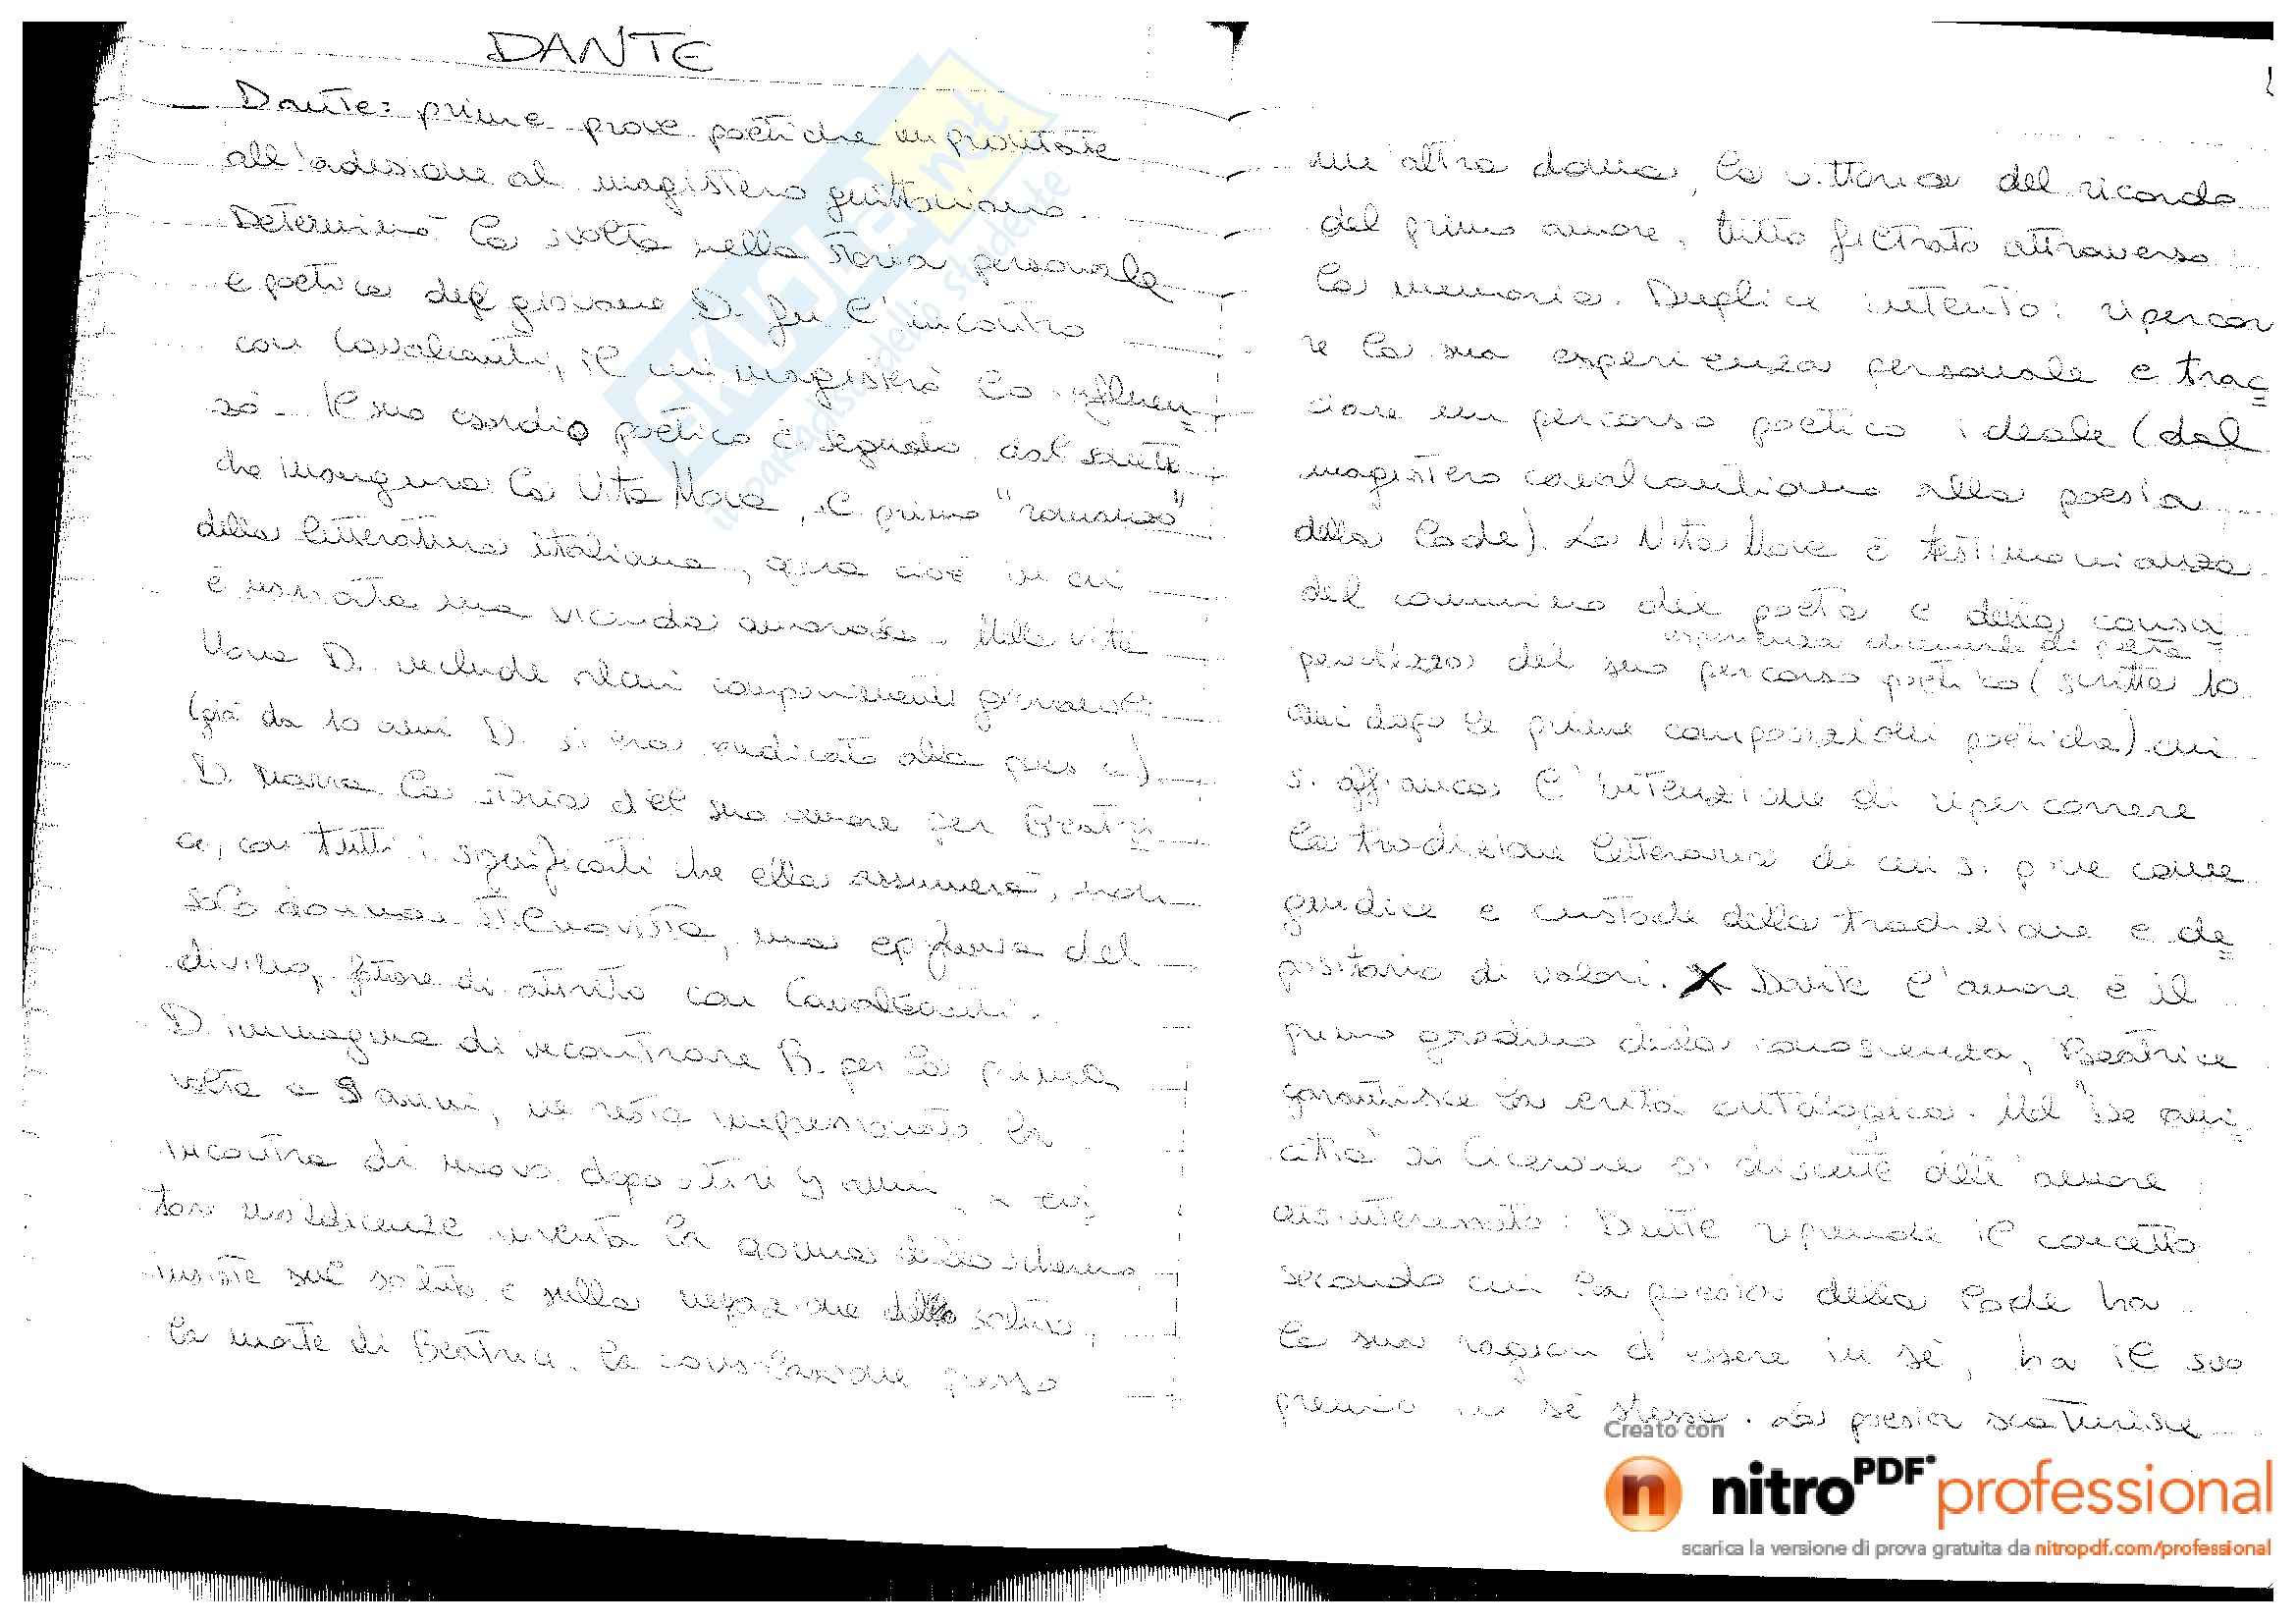 DANTE
Dante: prime prove poetiche improntate
all'adesione al magistero guittoniano.
Determinò la svolta nella storia personale
e poetica del giovane D. fu l'incontro
con Cavalcanti, il cui magistero lo influen=
zò. Il suo esordio poetico è segnato dal
che inaugura la Vita Nova, il primo "romanzo"
della letteratura italiana, opera cioè in cui
è narrata una vicenda amorosa. Nella Vita
Nova D. include alcuni componimenti giovanili
(già da 10 anni D. si era dedicato alla
D. narra la storia del suo amore per Beatri=
ce, con tutti i significati che ella assumerà, non
solo donna stilnovista, ma epifania del
divino, fattore di attrito con Cavalcanti.
D. immagina di incontrare B. per la prima
volta a 9 anni, ne resta impressionato. La
incontra di nuovo dopo altri 9 anni, x evi=
tare maldicenze inventa la donna dello schermo,
insiste sul saluto e sulla negazione del saluto,
la morte di Beatrice, la consolazione presso
un'altra donna, la vittoria del ricordo
del primo amore, tutto filtrato attraverso
la memoria. Duplice intento: ripercor
re la sua esperienza personale e trac=
ciare un percorso poetico ideale (dal
magistero cavalcantiano alla poesia
della lode). La Vita Nova è testimonianza
del cammino del poeta e della consa
pevolezza del suo percorso poetico (scritta 10
anni dopo le prime composizioni poetiche) cui
si affianca l'intenzione di ripercorrere
la tradizione letteraria di cui si pone come
giudice e custode della tradizione e de=
positario di valori. X Dante l'amore è il
primo gradino della conoscenza, Beatrice
garantisce la entità ontologica. Nel "De ami=
citia" di Cicerone si discute dell'amore
disinteressato: Dante riprende il concetto
secondo cui la poesia della lode ha
la sua ragion d'essere in sé, ha il suo
premio in sé stessa. La poesia scaturisce
Creato con
nitro PDF professional
scarica la versione di prova gratuita da nitropdf.com/professional